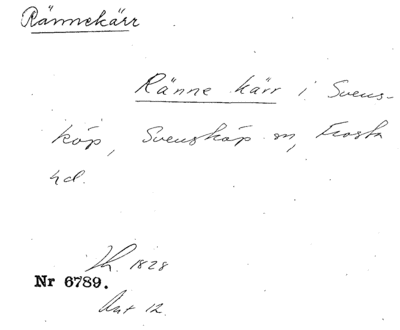 Rännekärr
Ränne kärr i Svens-
köp, Svensköp sn, Frosta
hd.
Lh. 1828
Nr 6789.
Ant 12.